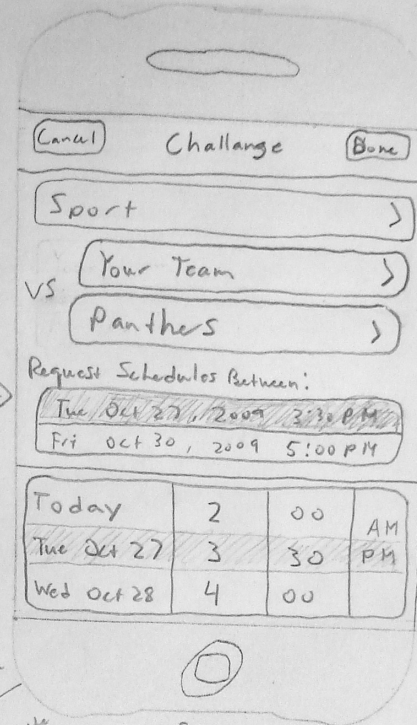 Cancel Challange Done
Sport
Your Team
VS
Panthers
Request Schedules Between:
Tue Oct 27, 2009 3:30 PM
Fri Oct 30, 2009 5:00 PM
Today 2 00 AM
Tue Oct 27 3 30 PM
Wed Oct 28 4 00